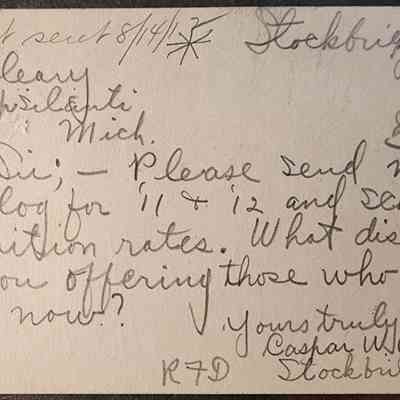 t sent 8/14/12 Stockbrid
leary
psilanti
Mich.
Sir; — Please send m
log for '11 & '12 and se
uition rates. What dis
ou offering those who
now? Yours truly
Caspar W.
RFD Stockbri